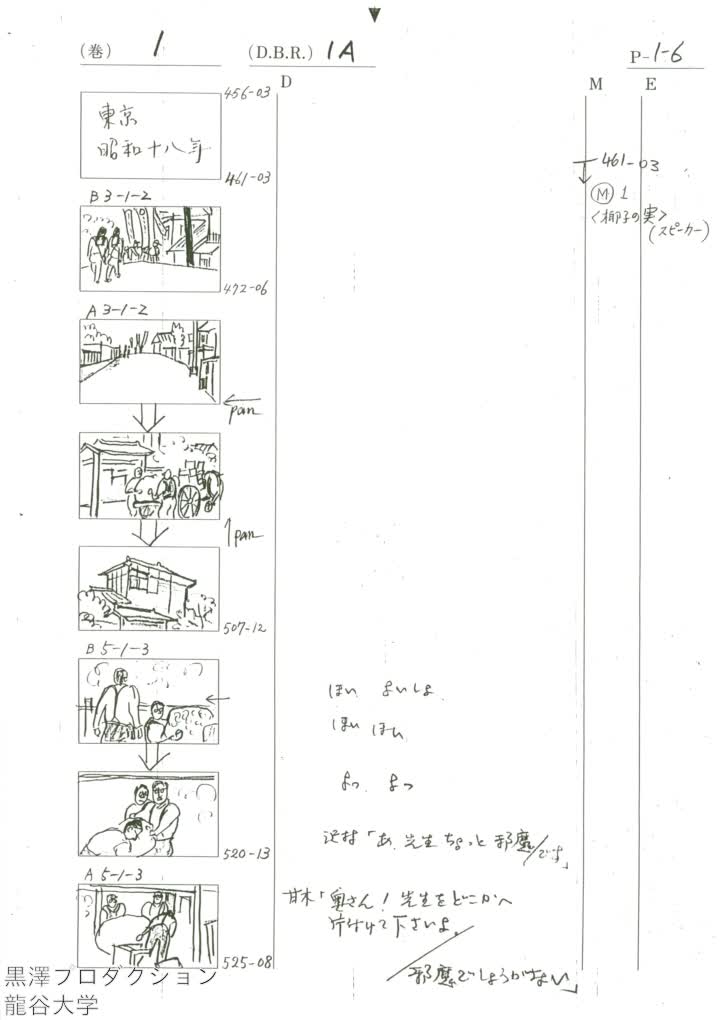 (巻) 1 (D.B.R.) 1A P-1-6
D M E
456-03
東京
昭和十八年
461-03
461-03
Ⓜ 1
〈椰子の実〉
(スピーカー)
B 3-1-2
472-06
A 3-1-2
pan
pan
507-12
B 5-1-3
ほい よいしょ
ほい ほい
よっ、よっ
沢村「あ、先生 ちょっと 邪魔/です」
520-13
A 5-1-3
甘木「奥さん! 先生をどこかへ
片付けて下さいよ。
邪魔でしょうがない」
525-08
黒澤プロダクション
龍谷大学